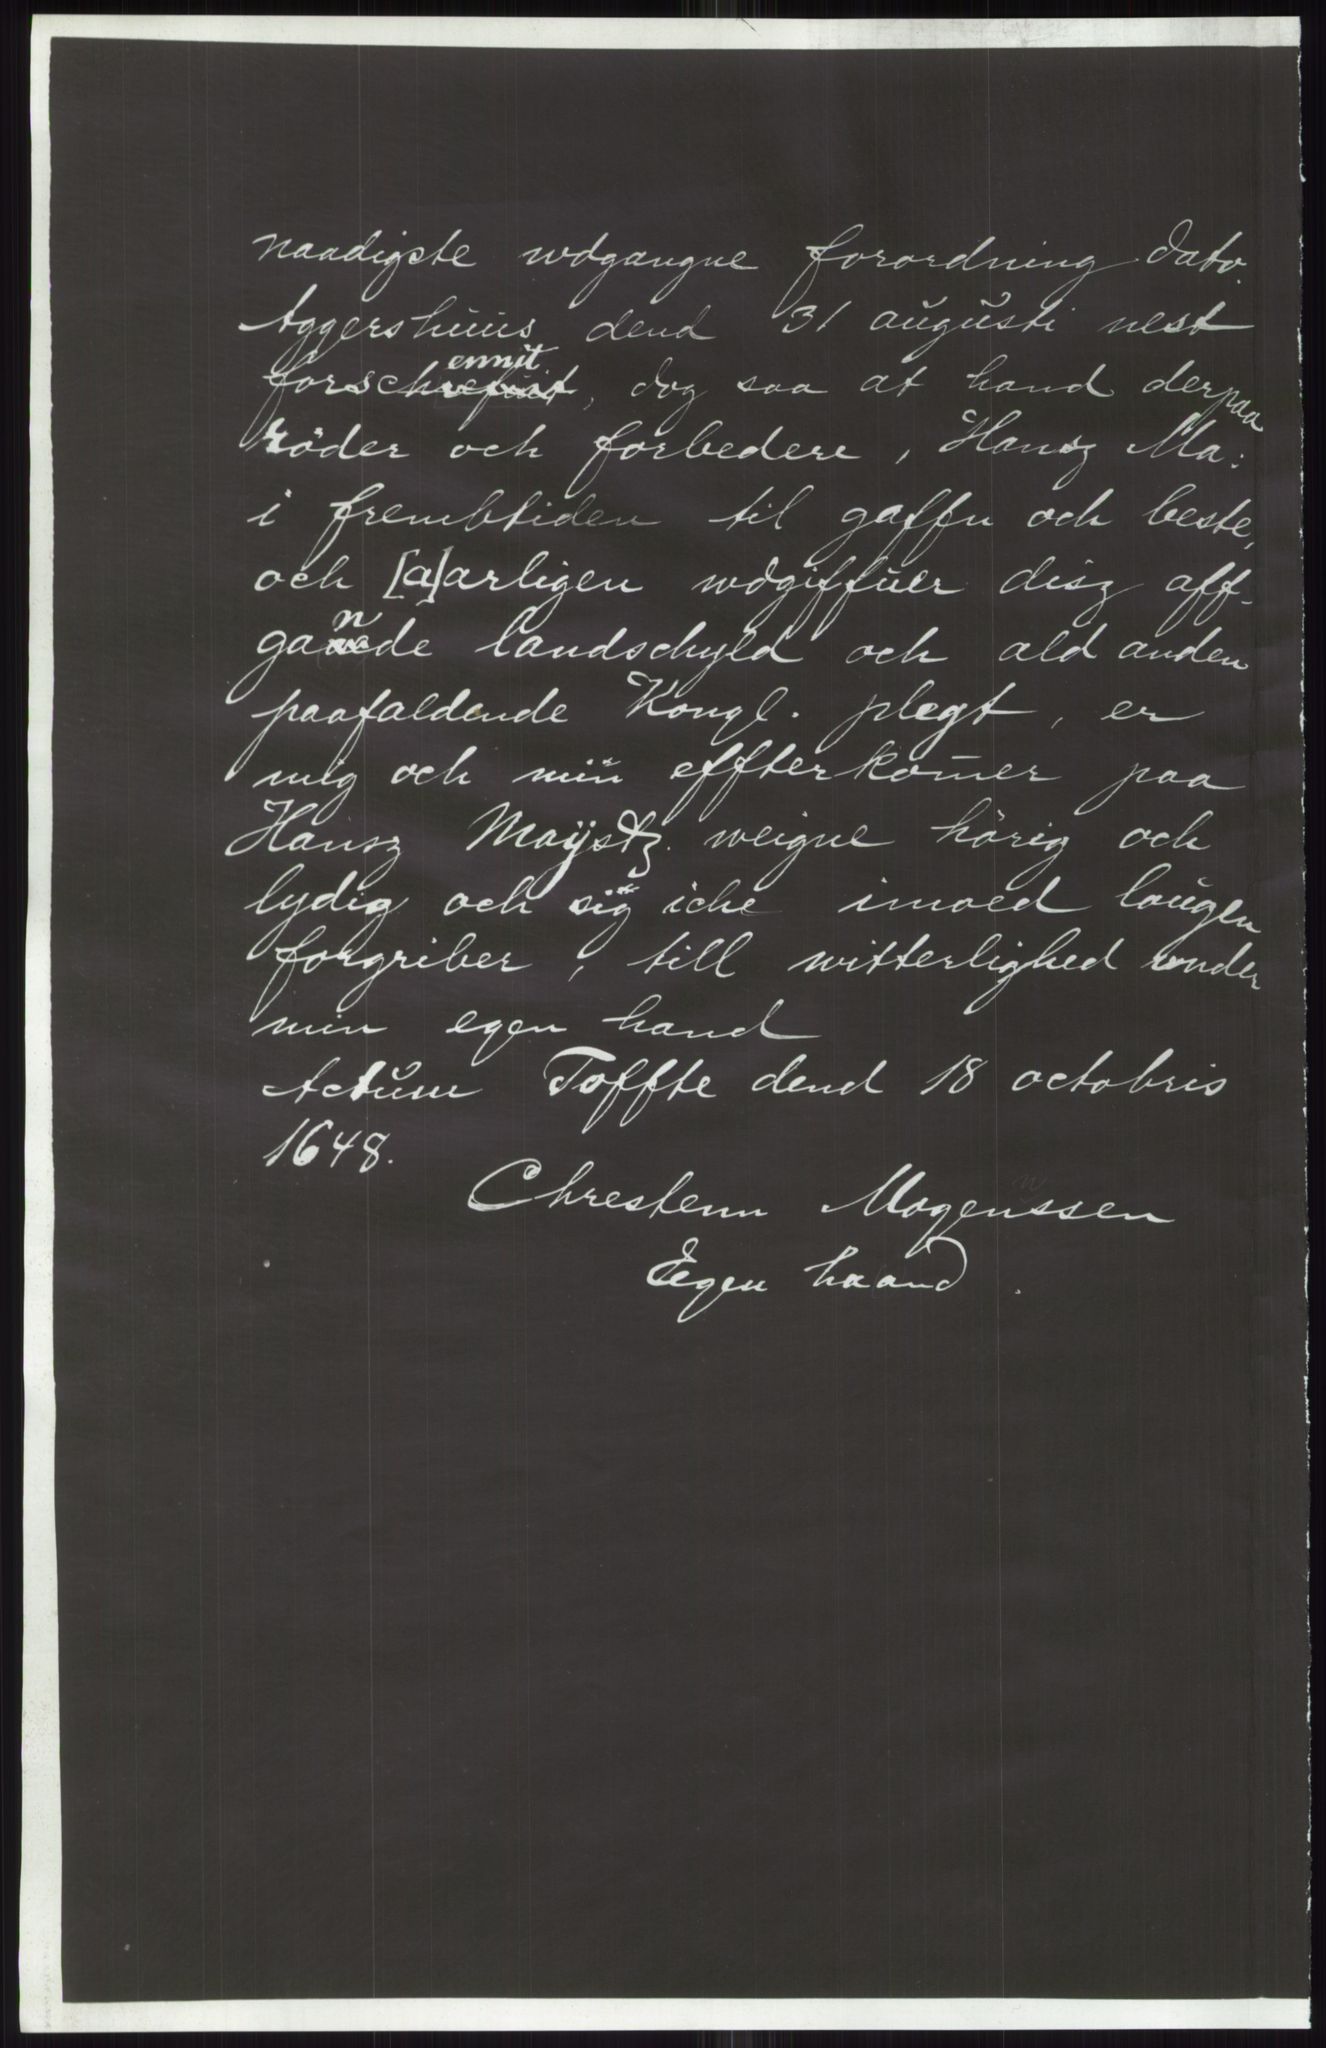 naadigste wdgangne forordning dato
Aggershuus dend 31 augusti nest
forschrefuit ennit, dog saa at hand derpaa
röder och forbedere, Hansz Ma:
i frembtiden til gaffn och beste,
och [a]arligen wdgiffuer disz aff-
gande landschyld och ald anden
paafaldende Kongl. plegt, er
mig och min effterkomer paa
Hansz Maÿstz. weigne hörig och
lydig och sig iche imoed laugen
forgriber, till witterlighed under
min egen hand
Actum Toffte dend 18 octobris
1648.
Chrestenn Mogenssen
Egen haand.